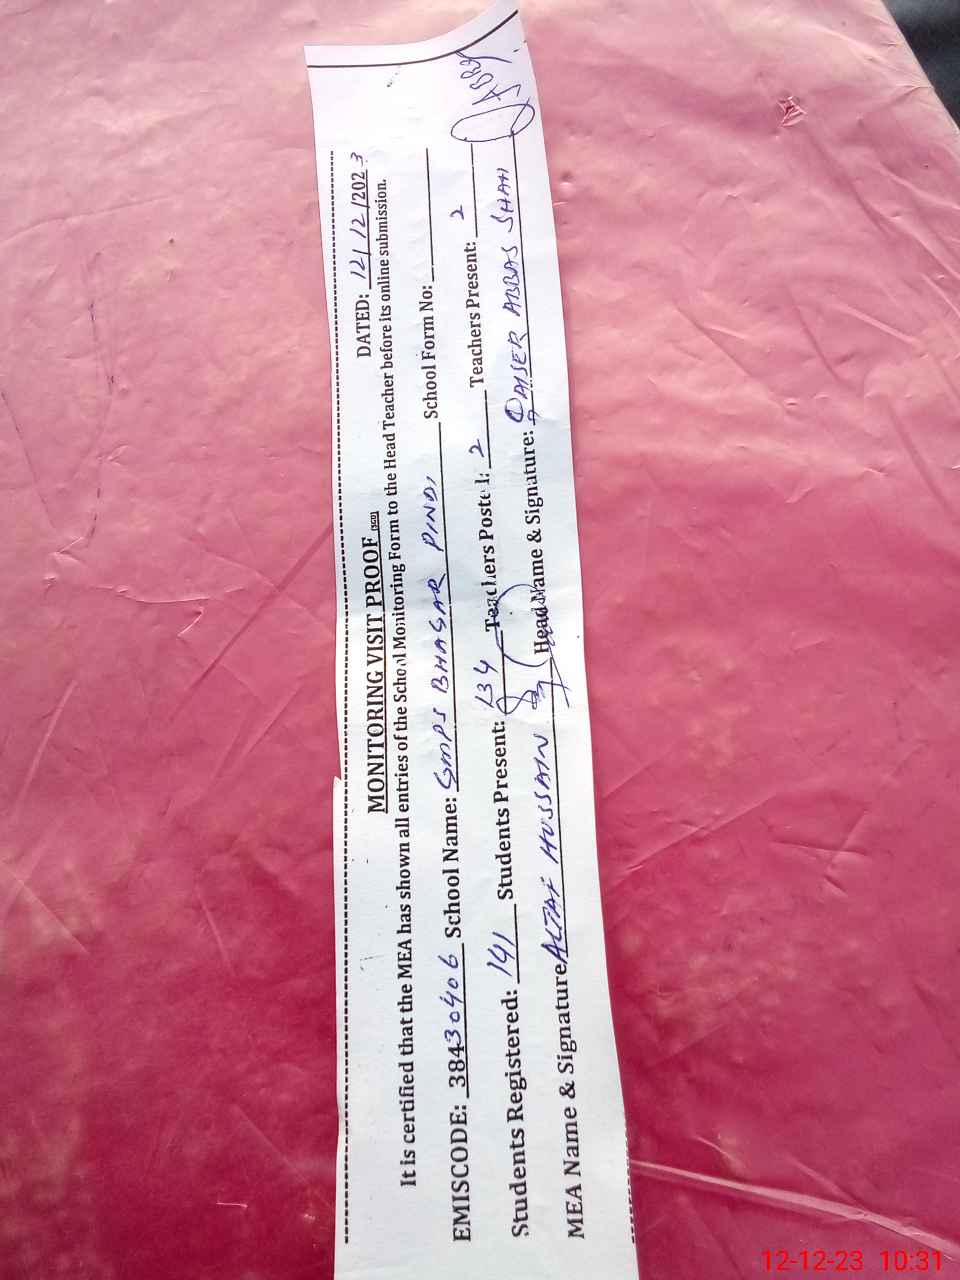 DATED: 12/12/2023
MONITORING VISIT PROOF (SCD)
It is certified that the MEA has shown all entries of the School Monitoring Form to the Head Teacher before its online submission.
EMISCODE: 38430406 School Name: GMPS BHAGAR PINDI School Form No:
Students Registered: 141 Students Present: 134 Teachers Posted: 2 Teachers Present: 2
MEA Name & Signature ALTAF HUSSAIN Head Name & Signature: QAISER ABBAS SHAH
12-12-23 10:31